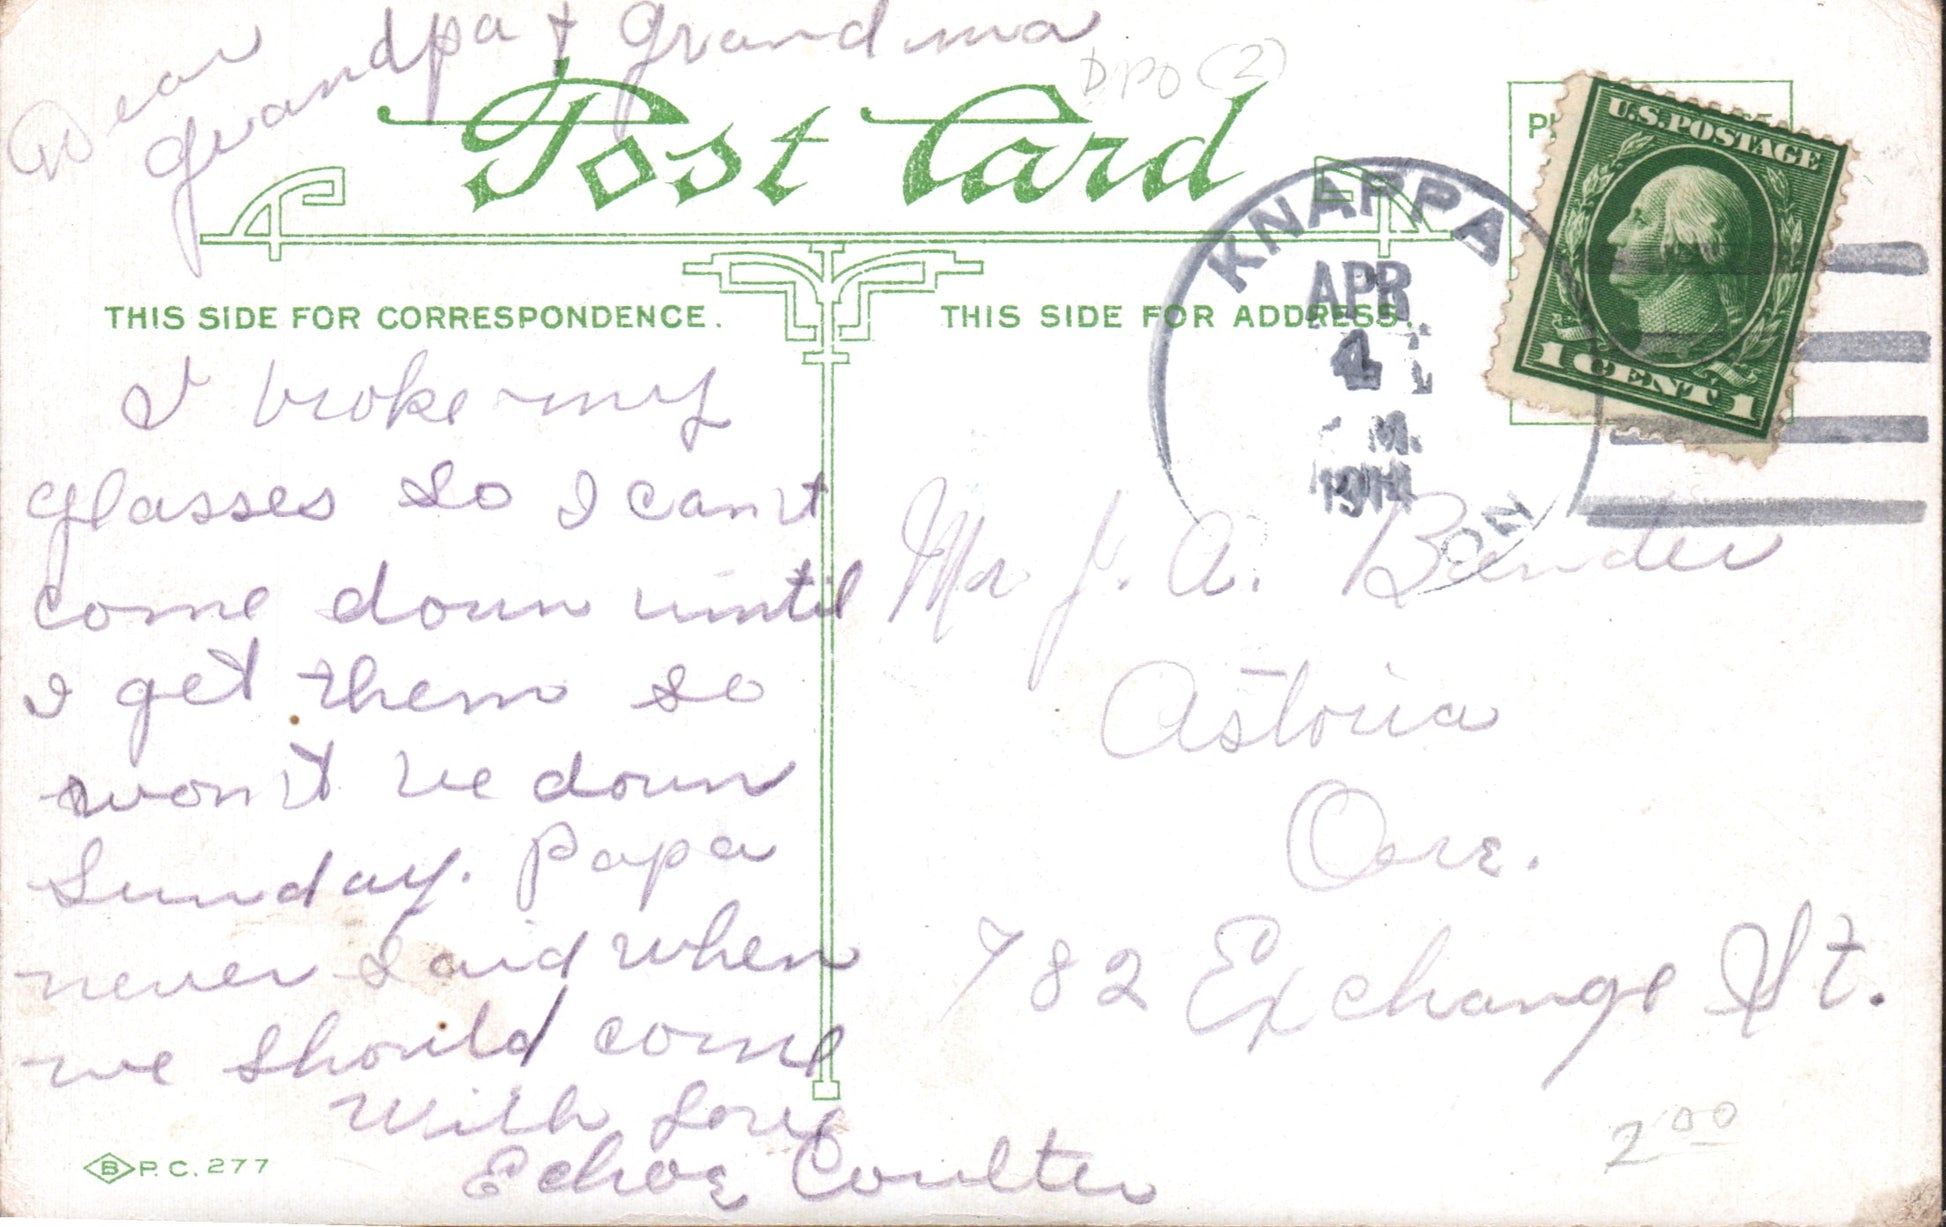 Dear
grandpa & grandma
DPO (2)
Post Card
U.S. POSTAGE
1 CENT 1
KNAPPA
APR
4
M.
THIS SIDE FOR CORRESPONDENCE.
THIS SIDE FOR ADDRESS.
I broke my
glasses so I can't
come down until
I get them so
won't be down
Sunday. Papa
never said when
we should come
With Love
Echoe Coulter
Mr J. A. Bander
Astoria
Ore.
782 Exchange St.
2 00
B P.C. 277